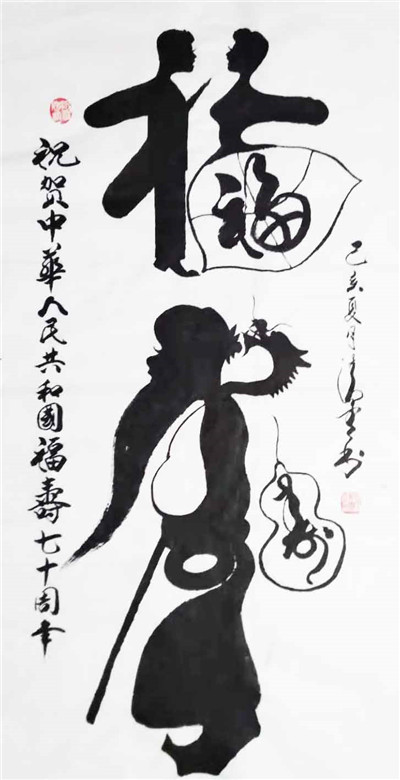 祝賀中華人民共和國福壽七十周年
福
寿
己亥夏月书